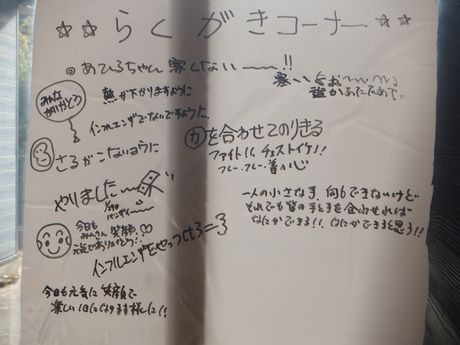 ☆☆らくがきコーナー☆☆
◎あひるちゃん 寒くない〜〜!!
寒いよぉ〜〜
誰かあたためて。
みんな
ありがとう
熱が下がりますように
インフルエンザでないですように
さるがこないように
力を合わせてのりきる
ファイト!! チェストイケ!!
フレー、フレー
やりました〜
今日も
みんな 笑顔
元気でありがとう!
インフルエンザをやっつけろ=3
一人の小さな手 何もできないけど
それでも皆の手と手を合わせれば
なにかできる!! なにかできると思う!!
今日も元気に笑顔で
楽しい1日になります様に!!